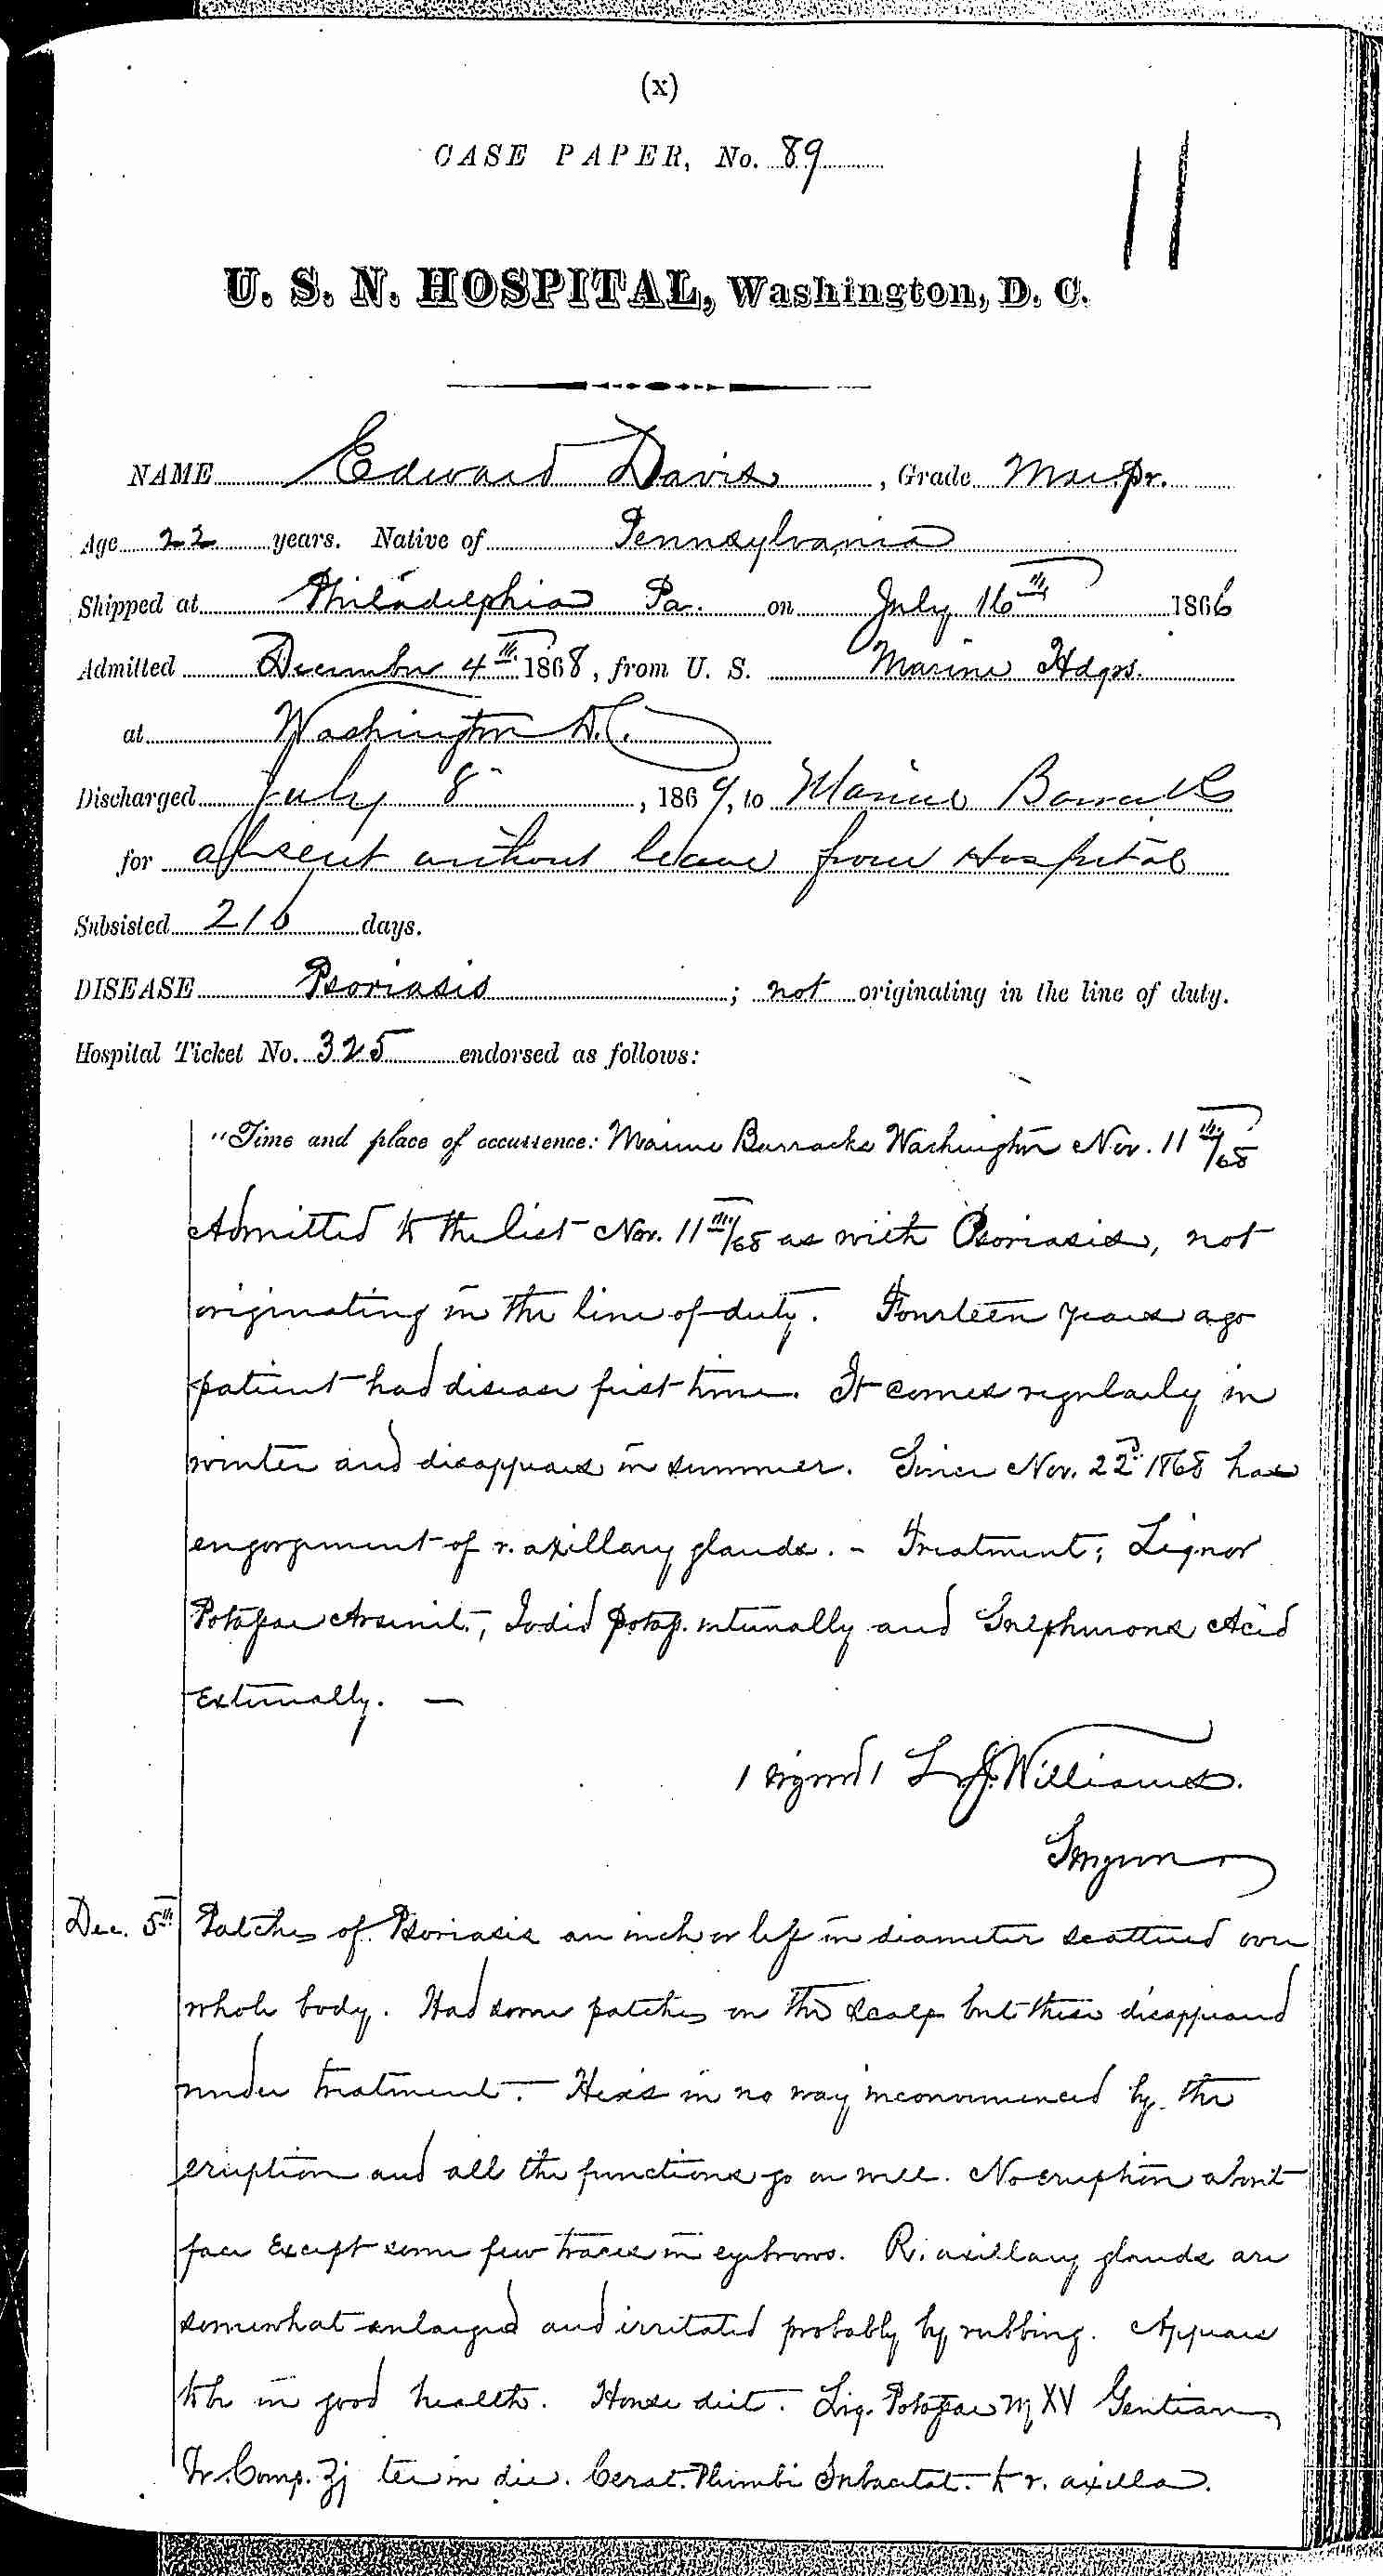 (x)
CASE PAPER, No. 89
11
U. S. N. HOSPITAL, Washington, D. C.
NAME Edward Davis, Grade Mar. Pr.
Age 22 years. Native of Pennsylvania
Shipped at Philadelphia Pa. on July 16th 1866
Admitted December 4th 1868, from U. S. Marine Hdqrs.
at Washington D.C.
Discharged July 8", 1869, to Marine Barracks
for absent without leave from Hospital
Subsisted 216 days.
DISEASE Psoriasis; not originating in the line of duty.
Hospital Ticket No. 325 endorsed as follows:
"Time and place of occurrence: Marine Barracks Washington Nov. 11th/68
Admitted to the list Nov. 11th/68 as with Psoriasis, not
originating in the line of duty. Fourteen years ago
patient had disease first time. It comes regularly in
winter and disappears in summer. Since Nov. 22d 1868 has
engorgement of r. axillary glands. - Treatment; Liquor
Potassae Arsenit., Iodid Potass. internally and Sulphurous Acid
Externally. —
/signed/ L. J. Williams.
Surgeon
Dec. 5th Patches of Psoriasis an inch or less in diameter scattered over
whole body. Had some patches on the scalp but these disappeared
under treatment. He is in no way inconvenienced by the
eruption and all the functions go on well. No eruption about
face Except some few traces in eyebrows. R. axillary glands are
somewhat enlarged and irritated probably by rubbing. Appears
to be in good health. House diet. Liq. Potassae ♏ XV Gentian
Tr. Comp. ʒj ter in die. Cerat. Plumbi Subacetat. to r. axilla.